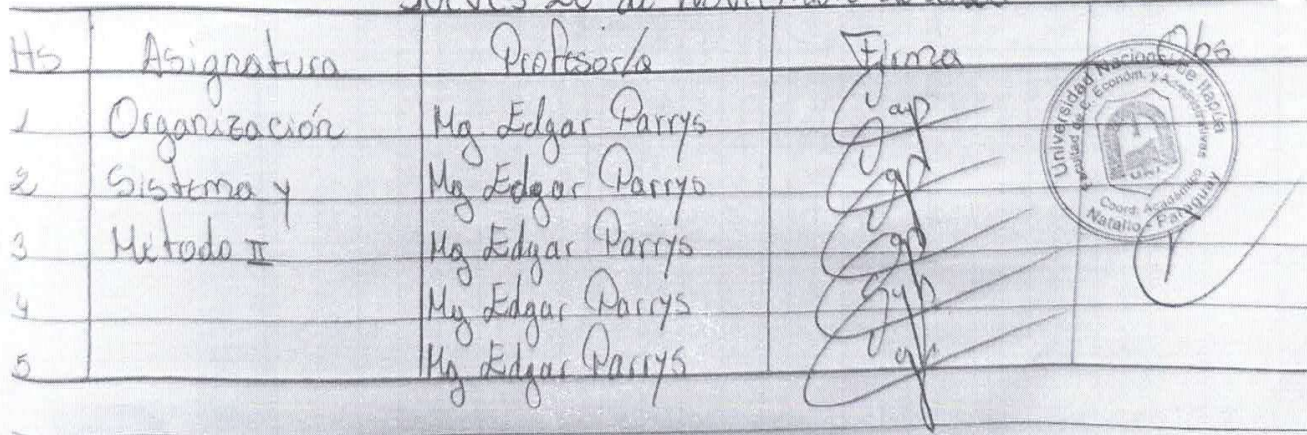 Hs Asignatura Profesor/a Firma Obs
1 Organización Mg Edgar Parrys
2 Sistema y Mg Edgar Parrys
3 Metodo II Mg Edgar Parrys
4 Mg Edgar Parrys
5 Mg Edgar Parrys
Universidad Nacional de Itapúa
Facultad de C. Económ. y Administrativas
Coord. Académica
Natalio - Paraguay